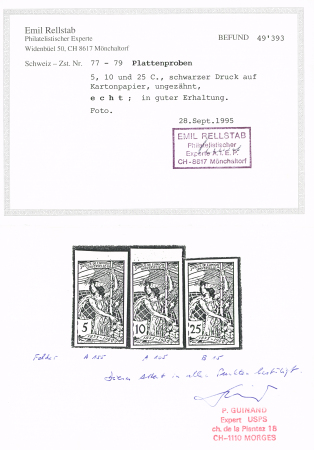 Emil Rellstab
Philatelistischer Experte
Widenbüel 50, CH 8617 Mönchaltorf
BEFUND 49'393
Schweiz – Zst. Nr. 77 - 79 Plattenproben
5, 10 und 25 C., schwarzer Druck auf
Kartonpapier, ungezähnt,
echt; in guter Erhaltung.
Foto.
28.Sept.1995
EMIL RELLSTAB
Philatelistischer
Experte A.I.E.P.
CH-8617 Mönchaltorf
5 10 25
Felder A 155 A 105 B 15
Dieses Attest in allen
P. GUINAND
Expert USPS
ch. de la Plantaz 18
CH-1110 MORGES